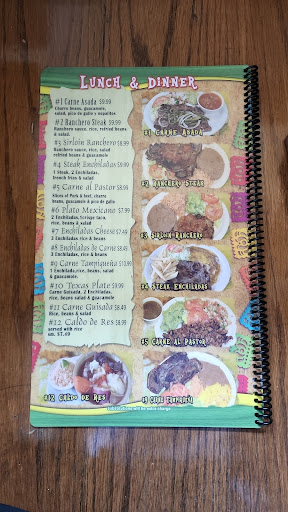 LUNCH & DINNER
#1 Carne Asada $9.99
Charro beans, guacamole,
salad, pico de gallo y nopalitos
#2 Ranchero Steak $9.99
Ranchero sauce, rice, refried beans
& salad.
#3 Sirloin Ranchero $8.99
Ranchero sauce, rice, salad,
refried beans & guacamole
#4 Steak Enchiladas $9.99
1 Steak, 2 Enchiladas,
french fries & salad
#5 Carne al Pastor $8.99
Slices of Pork & beef, charro
beans, guacamole & pico de gallo
#6 Plato Mexicano $7.99
2 Enchiladas, 1 crispy taco,
rice, beans & salad
#7 Enchiladas Cheese $7.49
3 Enchiladas rice & beans
#8 Enchiladas de Carne $8.99
3 Enchiladas, rice & beans
#9 Carne Tampiqueña $10.99
1 Enchilada, rice, beans, salad
& guacamole
#10 Texas Plate $9.99
Carne Guisada, 2 Enchiladas,
rice, beans salad & guacamole
#11 Carne Guisada $8.99
Rice, beans & salad
#12 Caldo de Res $8.99
served with rice
sm. $7.49
#1 CARNE ASADA
#2 RANCHERO STEAK
#3 SIRLOIN RANCHERO
#4 STEAK ENCHILADAS
#5 CARNE AL PASTOR
#12 CALDO DE RES
#9 CARNE TAMPIQUEÑA
Substitutions will be extra charge